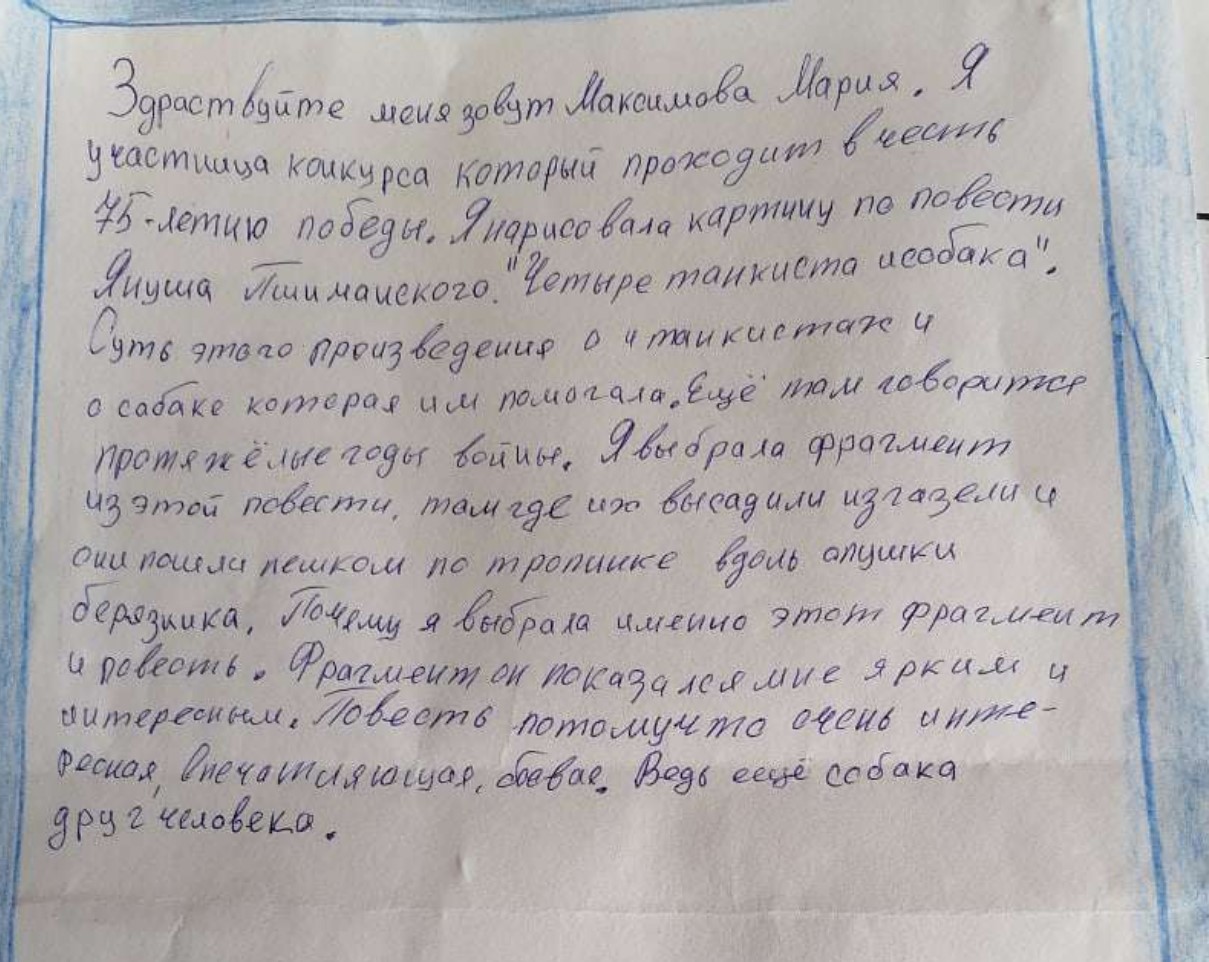 Здраствуйте меня зовут Максимова Мария. Я
участница конкурса который проходит в честь
75-летию победы. Я нарисовала картину по повести
Януша Пшимановского. "Четыре танкиста и собака".
Суть этого произведения о 4 танкистах и
о сабаке которая им помогала. Ещё там говорится
про тяжёлые годы войны. Я выбрала фрагмент
из этой повести, там где их высадили из газели и
они пошли пешком по тропинке вдоль опушки
берязника. Почему я выбрала именно этот фрагмент
и повесть. Фрагмент он показался мне ярким и
интересным. Повесть потомучто очень инте-
ресная, впечатляющая, боевая. Ведь ещё собака
друг человека.